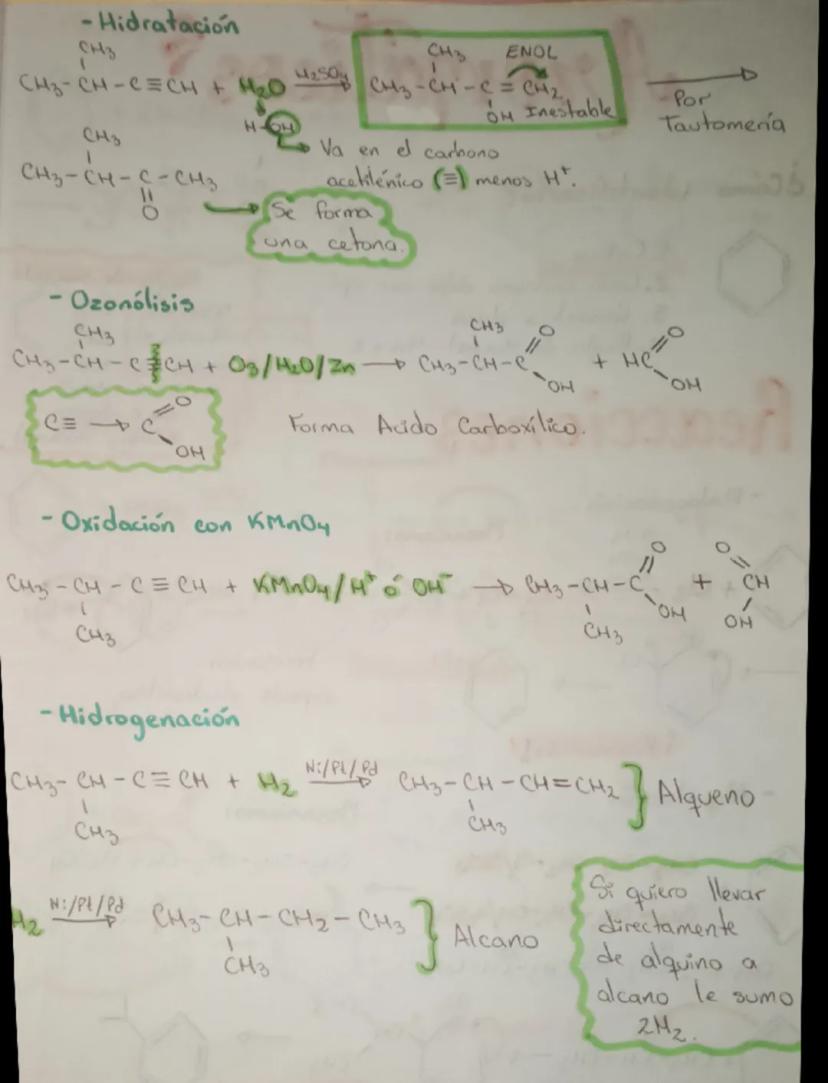 - Hidratación
CH3
CH3-CH-C≡CH + H2O H2SO4
CH3 ENOL
CH3-CH-C=CH2
OH Inestable
Por
Tautomería
H-OH
Va en el carbono
acetilénico (≡) menos H+.
CH3
CH3-CH-C-CH3
O
Se forma
una cetona.
- Ozonólisis
CH3
CH3-CH-C≡CH + O3/H2O/Zn → CH3-CH-C + HC
CH3 O O
OH OH
C≡ → C
O
OH
Forma Acido Carboxílico.
- Oxidación con KMnO4
CH3-CH-C≡CH + KMnO4/H+ ó OH- → CH3-CH-C + CH
CH3 CH3 O OH O OH
- Hidrogenación
CH3-CH-C≡CH + H2 Ni/Pt/Pd CH3-CH-CH=CH2 } Alqueno
CH3 CH3
H2 Ni/Pt/Pd CH3-CH-CH2-CH3 } Alcano
CH3
Si quiero llevar
directamente
de alquino a
alcano le sumo
2H2.